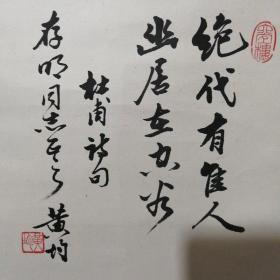 绝代有佳人
幽居在空谷
杜甫诗句
存明同志正之
黄均